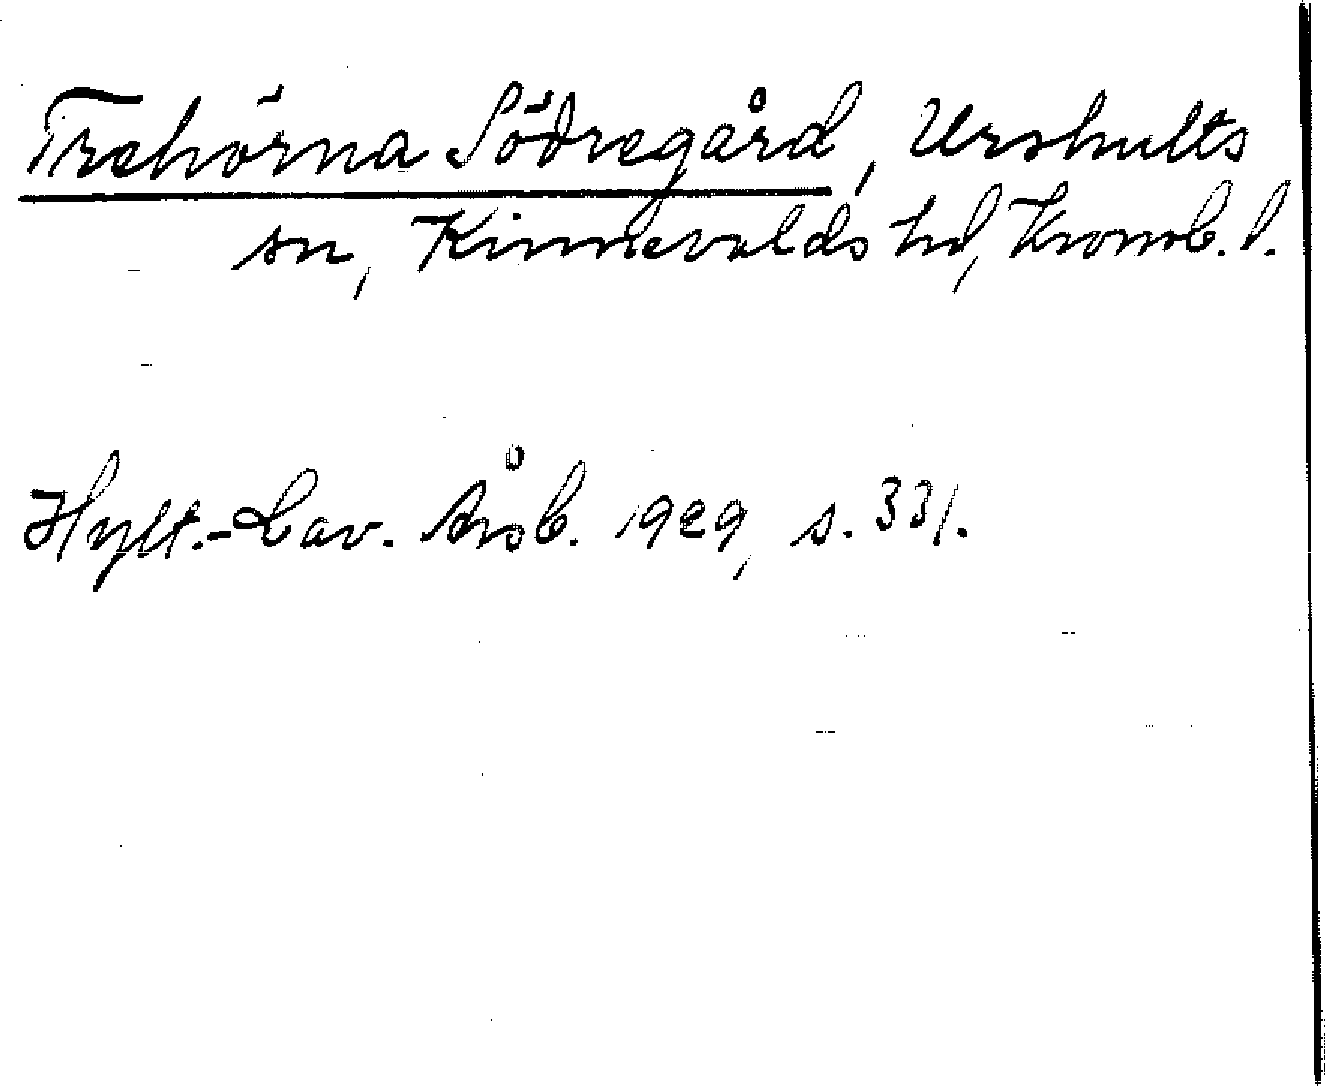 Trehörna Södregård, Urshults
sn, Kinnevalds hd, Kronob. l.
Hylt.-Cav. Årsb. 1929, s. 331.